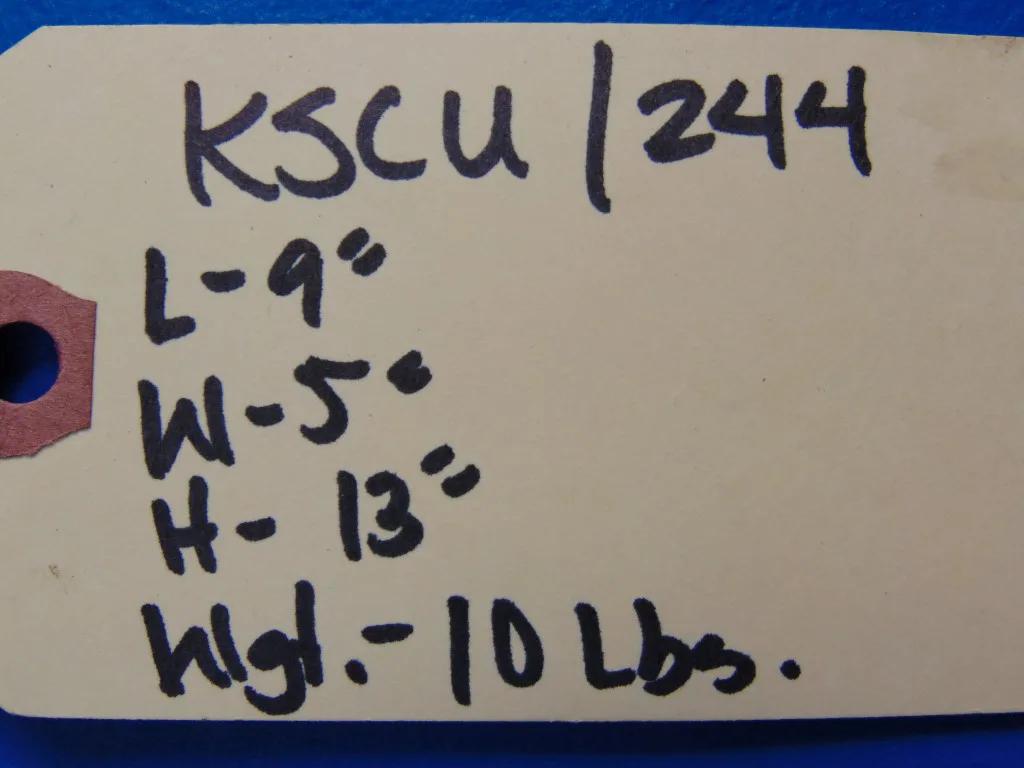 KSCU 1244
L-9"
W-5"
H- 13"
Wgt.- 10 Lbs.